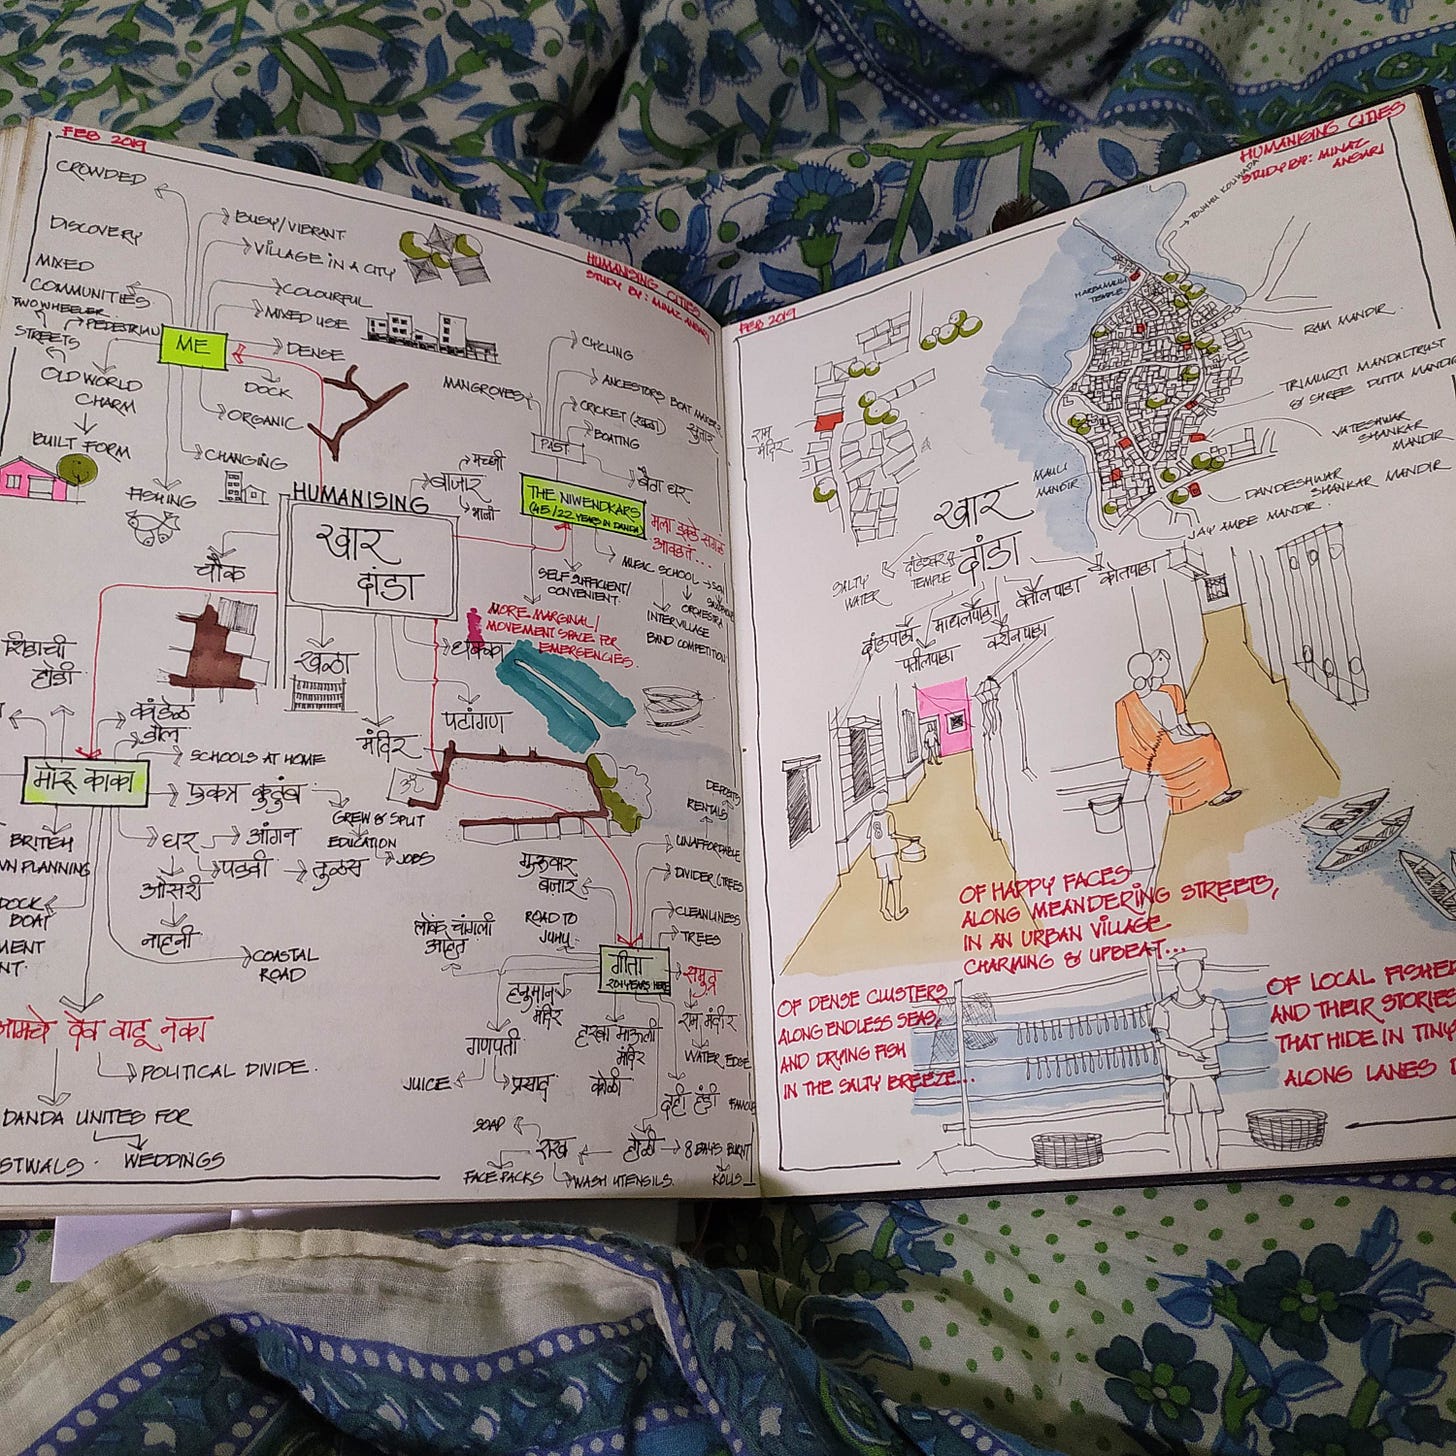 FEB 2019
CROWDED
DISCOVERY
MIXED
COMMUNITIES
TWO WHEELER
PEDESTRIAN
STREETS
OLD WORLD
CHARM
BUILT FORM
ME
BUSY/VIBRANT
VILLAGE IN A CITY
COLOURFUL
MIXED USE
DENSE
DOCK
ORGANIC
CHANGING
FISHING
HUMANISING CITIES
STUDY BY: MINAZ ANSARI
CYCLING
ANCESTORS BOAT MAKER
सुतार
MANGROVES
CRICKET (खळा)
BOATING
PAST
HUMANISING
खार
दांडा
बाजार
मच्छी
भाजी
THE NIWENDKARS
(45/22 YEARS IN DANDA)
मला इकडे सगळं
आवडतं...
MUSIC SCHOOL
ORCHESTRA
INTERVILLAGE
BAND COMPETITION
SELF SUFFICIENT/
CONVENIENT
MORE MARGINAL/
MOVEMENT SPACE FOR
EMERGENCIES.
चौक
खळा
धक्का
मंदिर
पटांगण
ॐ
होडी
मोरू काका
SCHOOLS AT HOME
एकत्र कुटुंब
GREW & SPLIT
EDUCATION
JOBS
घर
आंगन
पडवी
तुळस
ओसरी
नाहनी
BRITISH
PLANNING
DOCK
BOAT
COASTAL
ROAD
देव वाटू नका
POLITICAL DIVIDE.
DANDA UNITED FOR
WEDDINGS
गुरूवार
बाजार
ROAD TO
JUHU
लोकं चांगली
आहेत
गीता
20 YEARS HERE
DEPOSITS
RENTALS
UNAFFORDABLE
DIVIDER (TREES
CLEANLINESS
TREES
समुद्र
राम मंदीर
WATER EDGE
हनुमान
मंदिर
गणपती
JUICE
प्रसाद
मंदीर
कोळी
दही हंडी
होळी
8 DAYS BURNT
KOLIS
राख
SOAP
FACE PACKS
WASH UTENSILS.
FEB 2019
HUMANISING CITIES
STUDY BY: MINAZ
ANSARI
TEMPLE
RAM MANDIR.
TRIMURTI MANDAL TRUST
& SHREE DUTTA MANDIR
VATESHWAR
SHANKAR
MANDIR
DANDESHWAR
SHANKAR MANDIR
JAY AMBE MANDIR.
MAULI
MANDIR
राम
मंदिर
खार
दांडा
SALTY
WATER
TEMPLE
दांडपाडा
पाटीलपाडा
कोतपाडा
OF HAPPY FACES
ALONG MEANDERING STREETS,
IN AN URBAN VILLAGE
CHARMING & UPBEAT...
OF DENSE CLUSTERS
ALONG ENDLESS SEAS,
AND DRYING FISH
IN THE SALTY BREEZE...
OF LOCAL FISHER
AND THEIR STORIES
THAT HIDE IN TINY
ALONG LANES